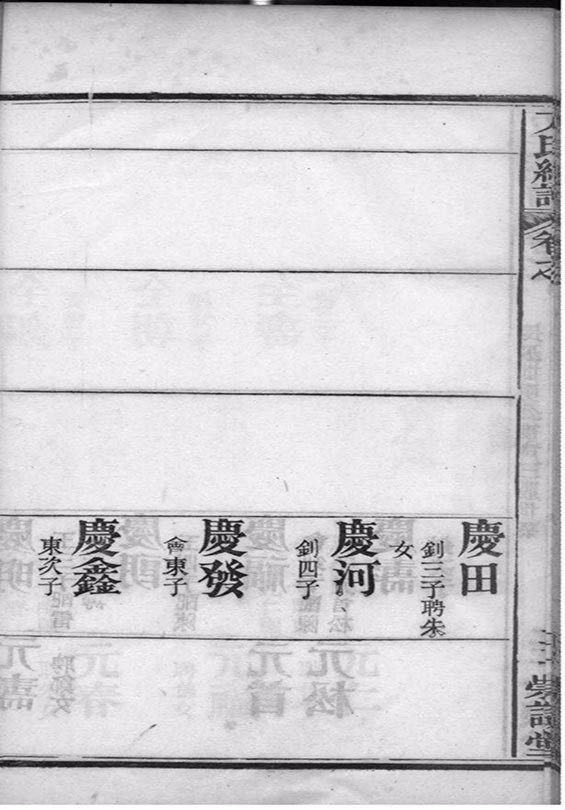 卷之
慶田
釗三子聘朱
女
慶河
釗四子
慶發
會東子
慶鑫
東次子